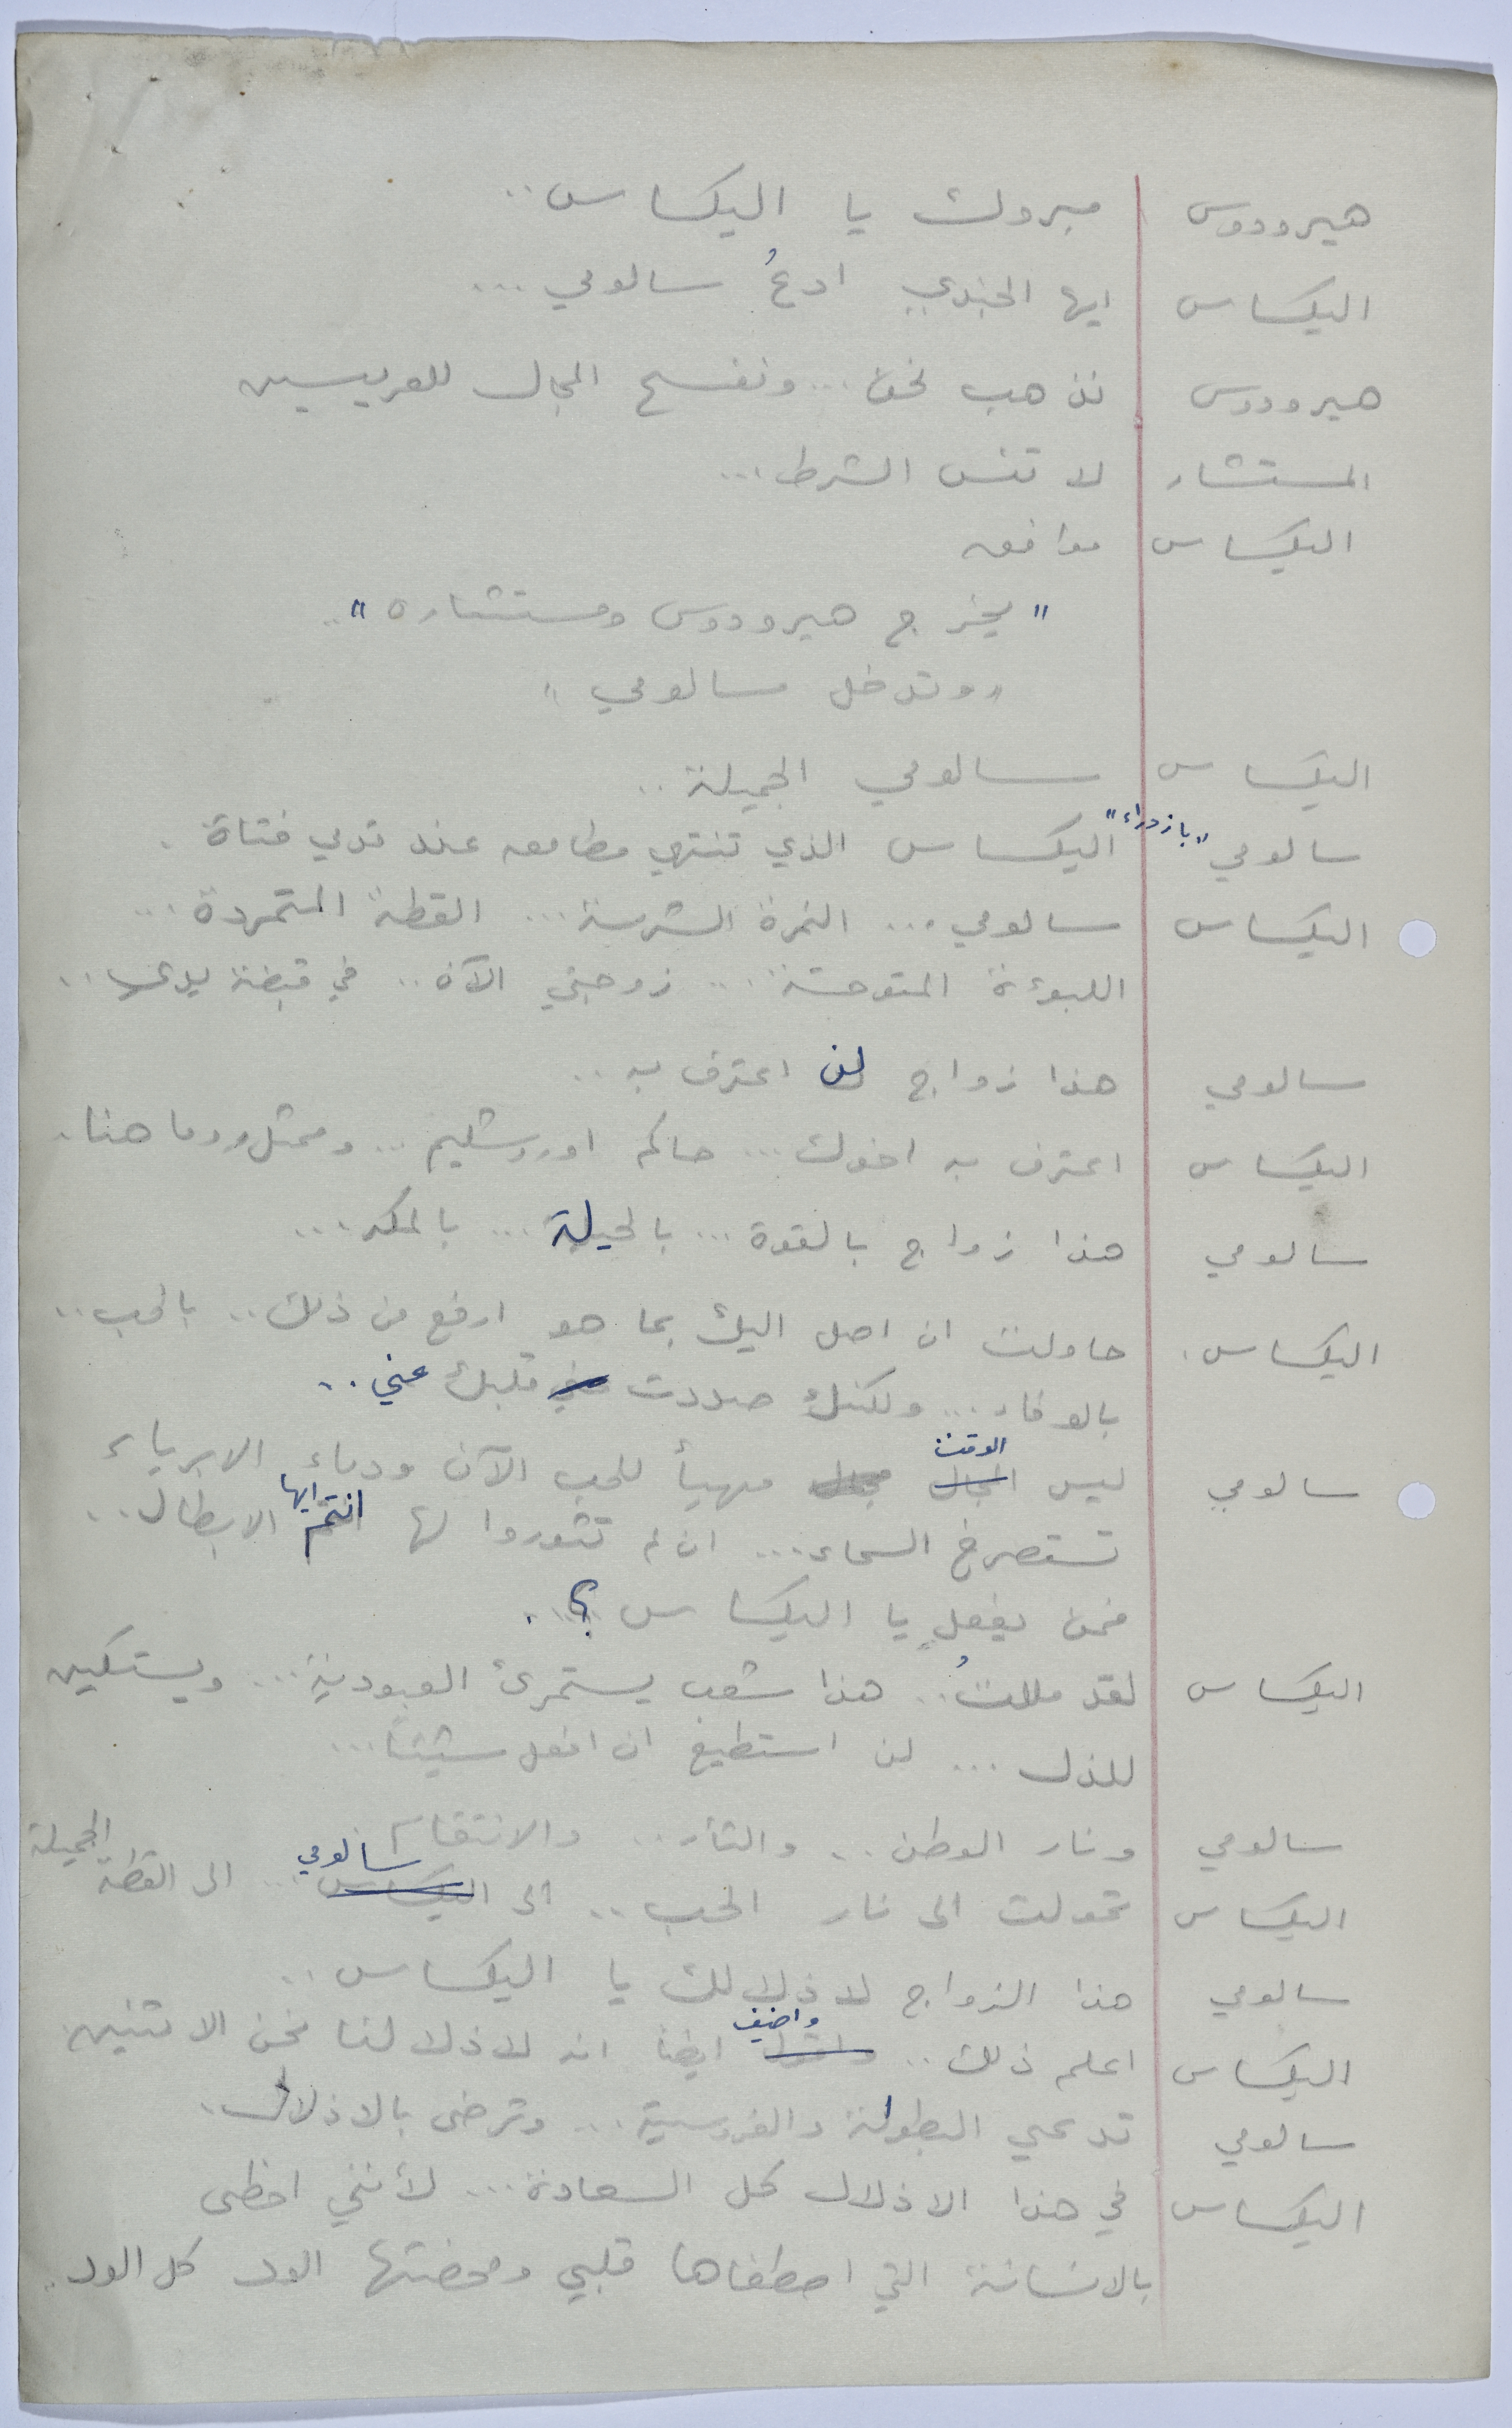 هيرودوس مبروك يا اليكساس..
اليكساس ايها الجندي ادعُ سالومي...
هيرودوس نذهب نحن... ونفسح المجال للعريسين
المستشار لا تنس الشرط...
اليكساس موافق
"يخرج هيرودوس ومستشاره"..
"وتدخل سالومي"
اليكساس سالومي الجميلة..
سالومي "بازدراء" اليكساس الذي تنتهي مطامعه عند قدمي فتاة.
اليكساس سالومي... النمرة الشرسة... القطة المتمردة...
اللبوءة المتوحشة... زوجتي الآن.. في قبضة يدي..
سالومي هذا زواج لن اعترف به..
اليكساس اعترف به اخوك... حاكم اورشليم... وممثل روما هنا.
سالومي هذا زواج بالقوة... بالحيلة... بالمكر...
اليكساس. حاولت ان اصل اليك بما هو ارفع من ذلك.. بالحب..
بالوفاء... ولكنك صددت عني قلبك عني..
سالومي ليس المجال الوقت مجال مهيأ للحب الآن ودماء الابرياء
تستصرخ السماء... ان لم تثوروا لها انتم ايها الابطال..
فمن يفعل يا اليكساس ؟..
اليكساس لقد مللتُ.. هذا شعب يستمرئ العبودية... ويستكين
للذل... لن استطيع ان افعل شيئا...
سالومي ونار الوطن.. والثأر.. والانتقام
اليكساس تحولت الى نار الحب.. الى اليكساس سالومي... الى القطة الجميلة
سالومي هذا الزواج لاذلالك يا اليكساس..
اليكساس اعلم ذلك.. واضيف ايضا انه لاذلالنا نحن الاثنين.
سالومي تدعي البطولة والفروسية... وترضى بالاذلال.
اليكساس في هذا الاذلال كل السعادة... لأنني احظى
بالانسانة التي اصطفاها قلبي ومحضتها الود كل الود..